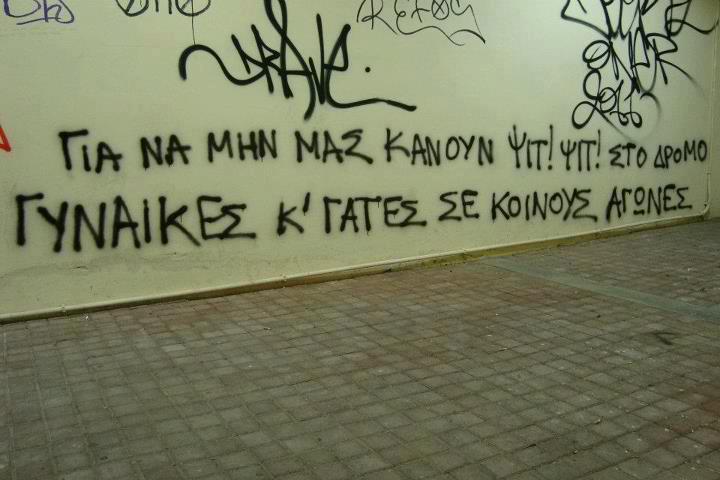 ΓΙΑ ΝΑ ΜΗΝ ΜΑΣ ΚΑΝΟΥΝ ΨΙΤ! ΨΙΤ! ΣΤΟ ΔΡΟΜΟ
ΓΥΝΑΙΚΕΣ Κ' ΓΑΤΕΣ ΣΕ ΚΟΙΝΟΥΣ ΑΓΩΝΕΣ